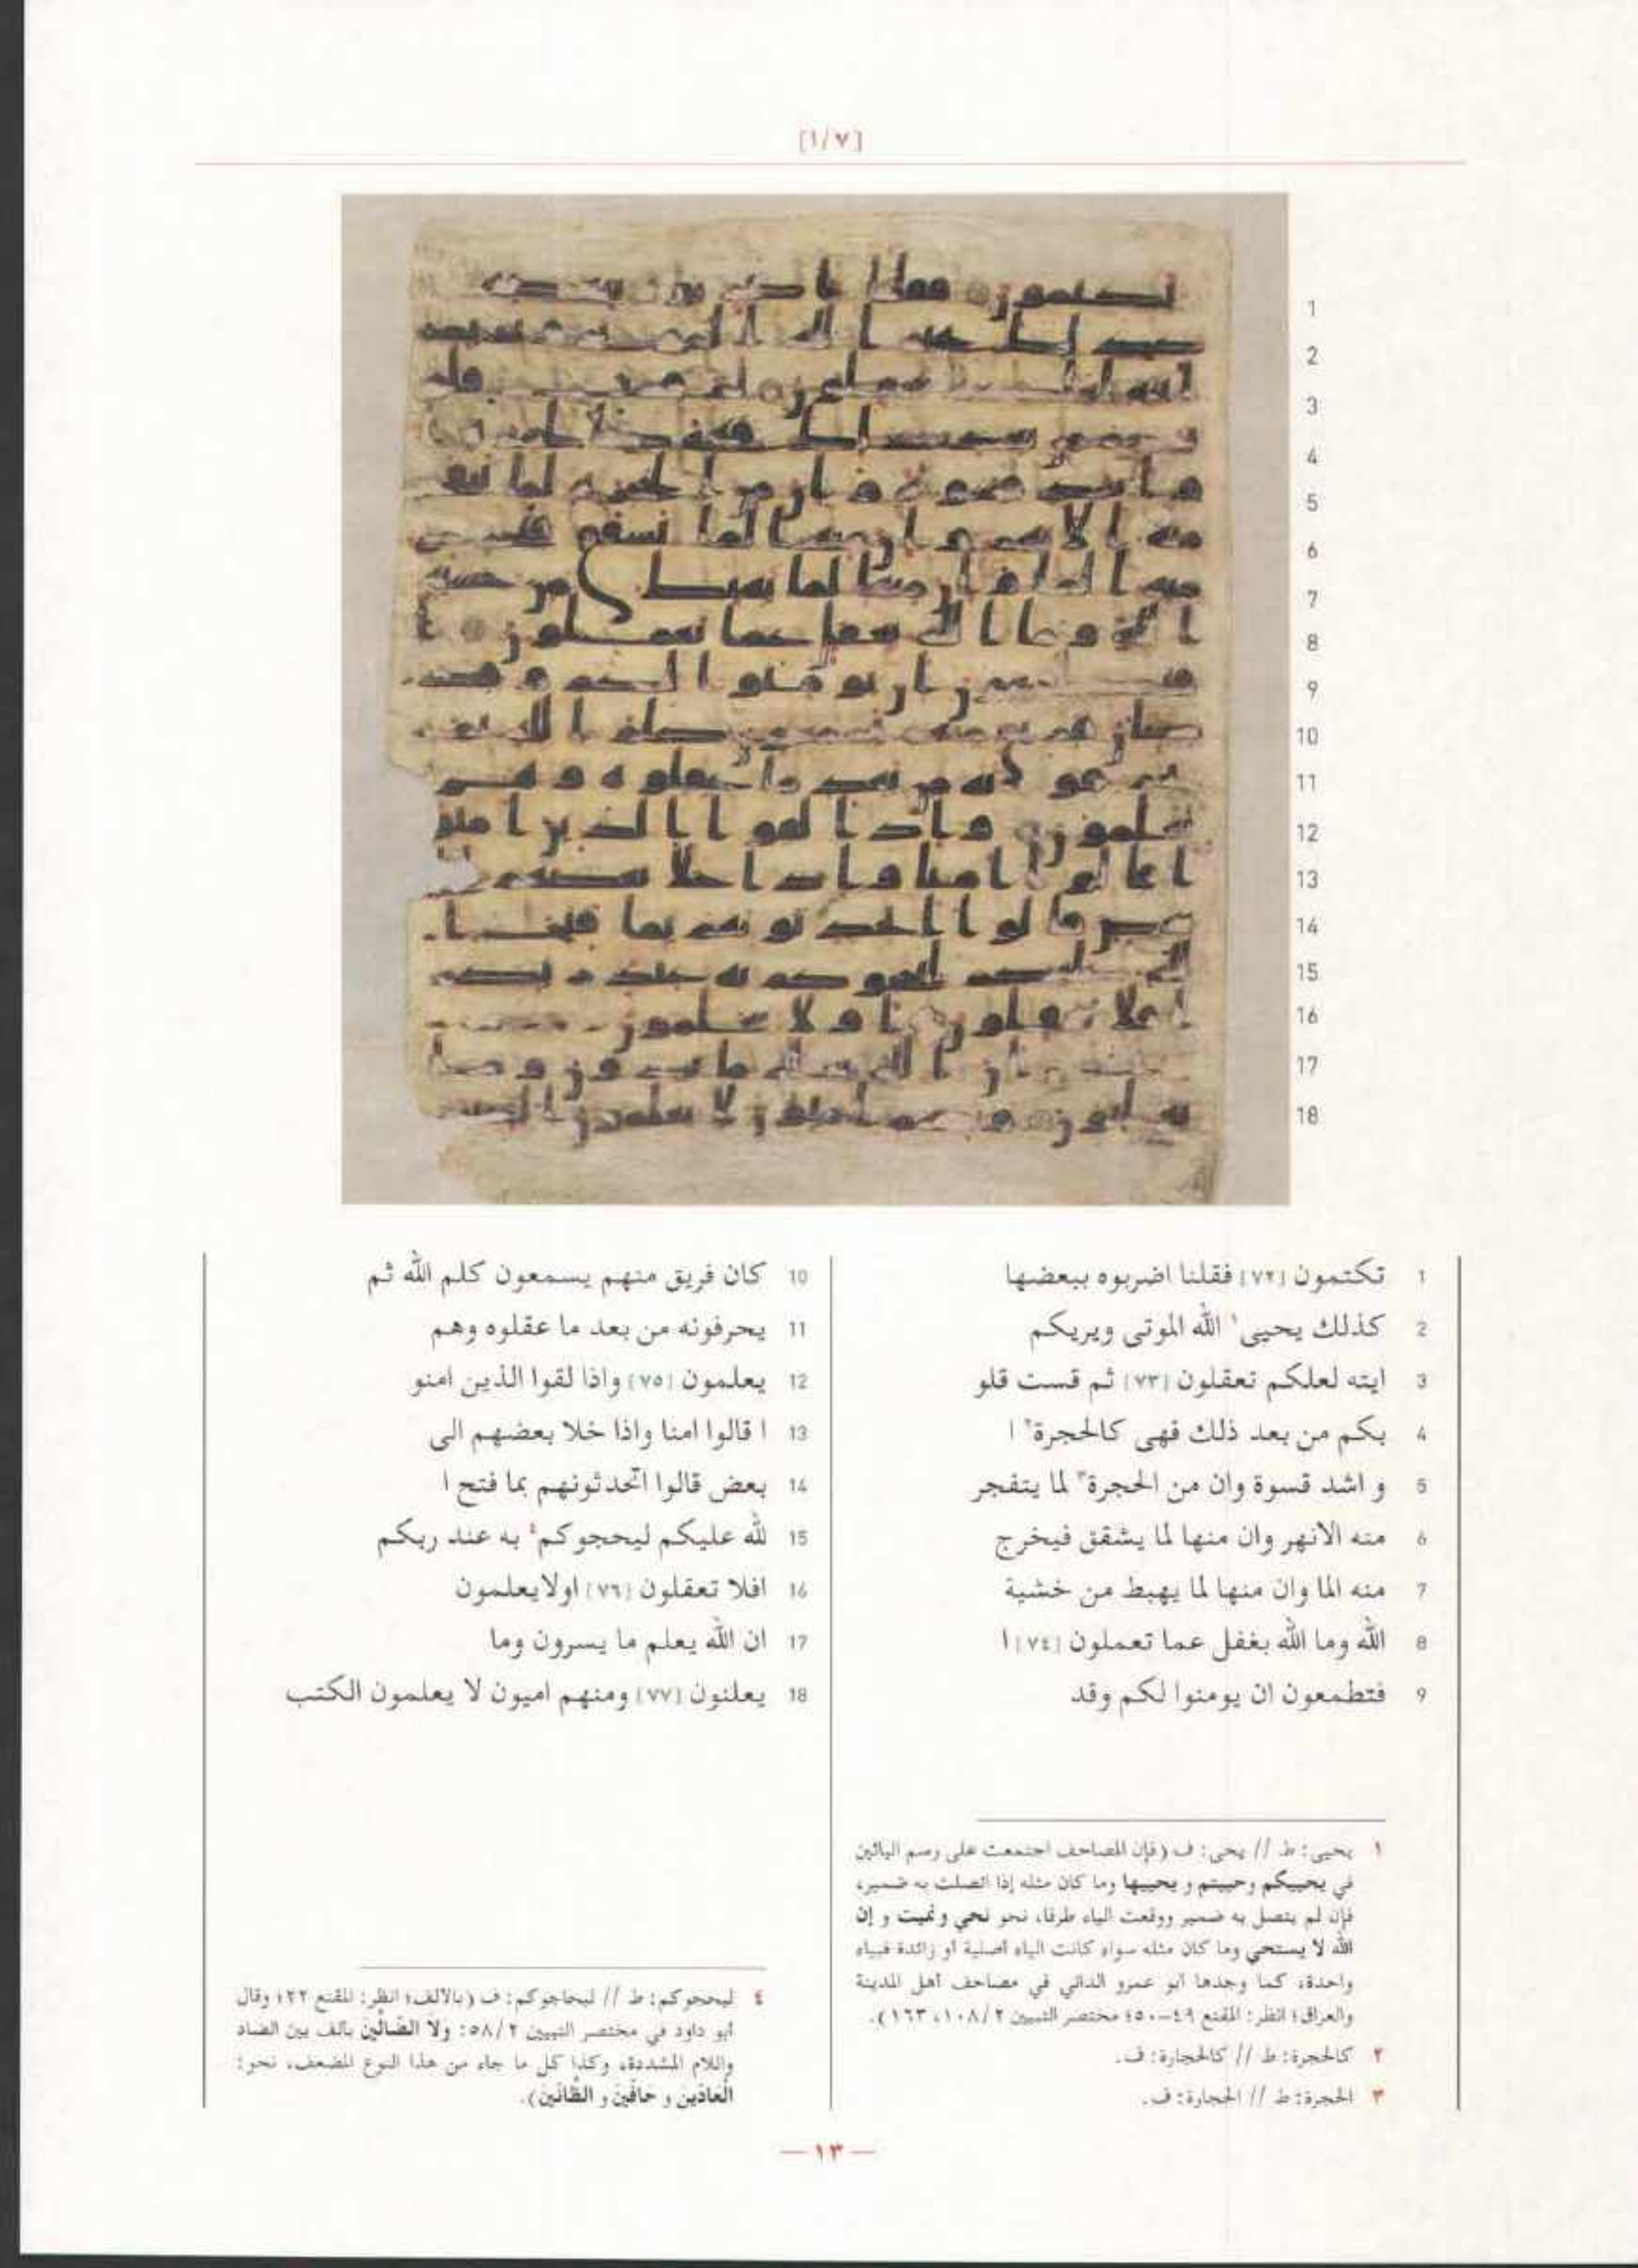 [١/٧]
1
2
3
4
5
6
7
8
9
10
11
12
13
14
15
16
17
18
1 تكتمون [٧٢] فقلنا اضربوه ببعضها
2 كذلك يحيى١ الله الموتى ويريكم
3 ايته لعلكم تعقلون [٧٣] ثم قست قلو
4 بكم من بعد ذلك فهى كالحجرة٢ ا
5 و اشد قسوة وان من الحجرة٣ لما يتفجر
6 منه الانهر وان منها لما يشقق فيخرج
7 منه الما وان منها لما يهبط من خشية
8 الله وما الله بغفل عما تعملون [٧٤] ا
9 فتطمعون ان يومنوا لكم وقد
10 كان فريق منهم يسمعون كلم الله ثم
11 يحرفونه من بعد ما عقلوه وهم
12 يعلمون [٧٥] واذا لقوا الذين امنو
13 ا قالوا امنا واذا خلا بعضهم الى
14 بعض قالوا اتحدثونهم بما فتح ا
15 لله عليكم ليحجوكم٤ به عند ربكم
16 افلا تعقلون [٧٦] اولايعلمون
17 ان الله يعلم ما يسرون وما
18 يعلنون [٧٧] ومنهم اميون لا يعلمون الكتب
١ يحيى: ط // يحى: ف (فإن المصاحف اجتمعت على رسم اليائين
في يحييكم وحييتم و يحييها وما كان مثله إذا اتصلت به ضمير،
فإن لم يتصل به ضمير ووقعت الياء طرفا، نحو نحي ونميت و إن
الله لا يستحي وما كان مثله سواء كانت الياء أصلية أو زائدة فبياء
واحدة، كما وجدها أبو عمرو الداني في مصاحف أهل المدينة
والعراق؛ انظر: المقنع ٤٩-٥٠؛ مختصر التبيين ١٠٨/٢، ١٦٣).
٢ كالحجرة: ط // كالحجارة: ف.
٣ الحجرة: ط // الحجارة: ف.
٤ ليحجوكم: ط // ليحاجوكم: ف (بالالف؛ انظر: المقنع ٢٢؛ وقال
أبو داود في مختصر التبيين ٥٨/٢: ولا الضالين بألف بين الضاد
واللام المشددة، وكذا كل ما جاء من هذا النوع المضعف، نحو:
العادين و حافين و الظانين).
— ١٣ —